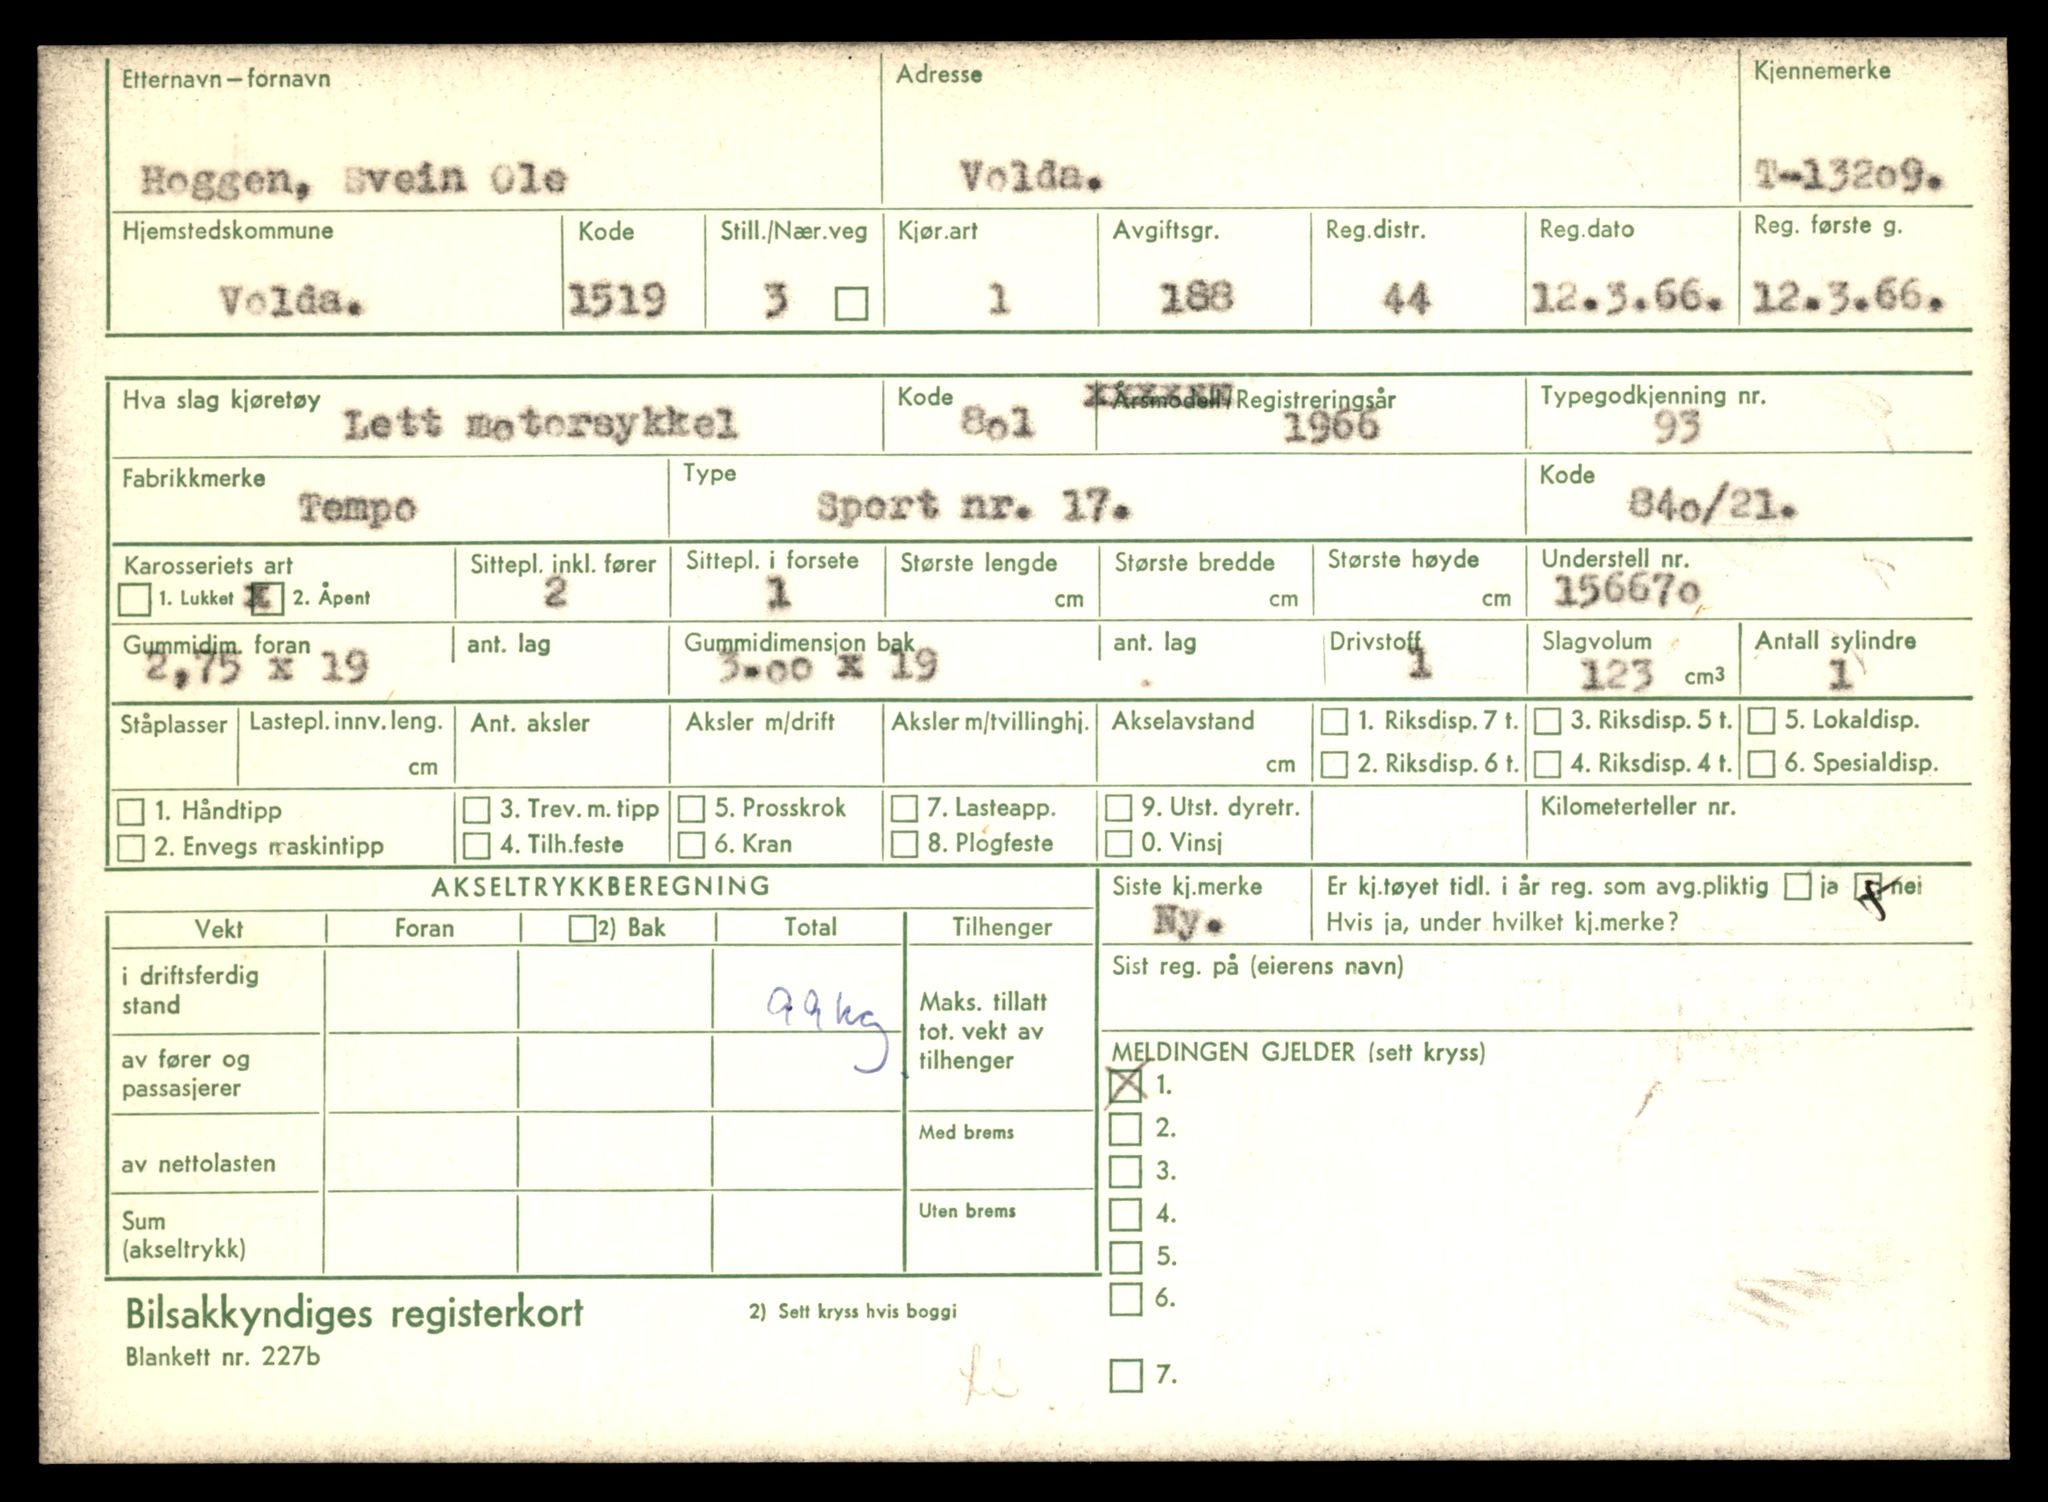 Etternavn – fornavn Adresse Kjennemerke
Hoggen, Svein Ole Volda. T-13209.
Hjemstedskommune Kode Still./Nær.veg Kjør.art Avgiftsgr. Reg.distr. Reg.dato Reg. første g.
Volda. 1519 3 1 188 44 12.3.66. 12.3.66.
Hva slag kjøretøy Kode Årsmodell/Registreringsår Typegodkjenning nr.
Lett motorsykkel 801 1966 93
Fabrikkmerke Type Kode
Tempo Sport nr. 17. 840/21.
Karosseriets art Sittepl. inkl. fører Sittepl. i forsete Største lengde Største bredde Største høyde Understell nr.
1. Lukket x 2. Åpent 2 1 cm cm cm 156670
Gummidim. foran ant. lag Gummidimensjon bak ant. lag Drivstoff Slagvolum Antall sylindre
2,75 x 19 3.00 x 19 1 123 cm3 1
Ståplasser Lastepl. innv. leng. Ant. aksler Aksler m/drift Aksler m/tvillinghj. Akselavstand 1. Riksdisp. 7 t. 3. Riksdisp. 5 t. 5. Lokaldisp.
cm cm 2. Riksdisp. 6 t. 4. Riksdisp. 4 t. 6. Spesialdisp.
1. Håndtipp 3. Trev. m. tipp 5. Prosskrok 7. Lasteapp. 9. Utst. dyretr. Kilometerteller nr.
2. Envegs maskintipp 4. Tilh.feste 6. Kran 8. Plogfeste 0. Vinsj
AKSELTRYKKBEREGNING Siste kj.merke Er kj.tøyet tidl. i år reg. som avg.pliktig ja nei
Ny. Hvis ja, under hvilket kj.merke?
Vekt Foran 2) Bak Total Tilhenger
Sist reg. på (eierens navn)
i driftsferdig
stand 99 kg
Maks. tillatt
tot. vekt av
tilhenger
MELDINGEN GJELDER (sett kryss)
av fører og
passasjerer
X 1.
2.
Med brems
av nettolasten 3.
4.
Uten brems
Sum
(akseltrykk)
5.
6.
Bilsakkyndiges registerkort 2) Sett kryss hvis boggi
Blankett nr. 227b
7.